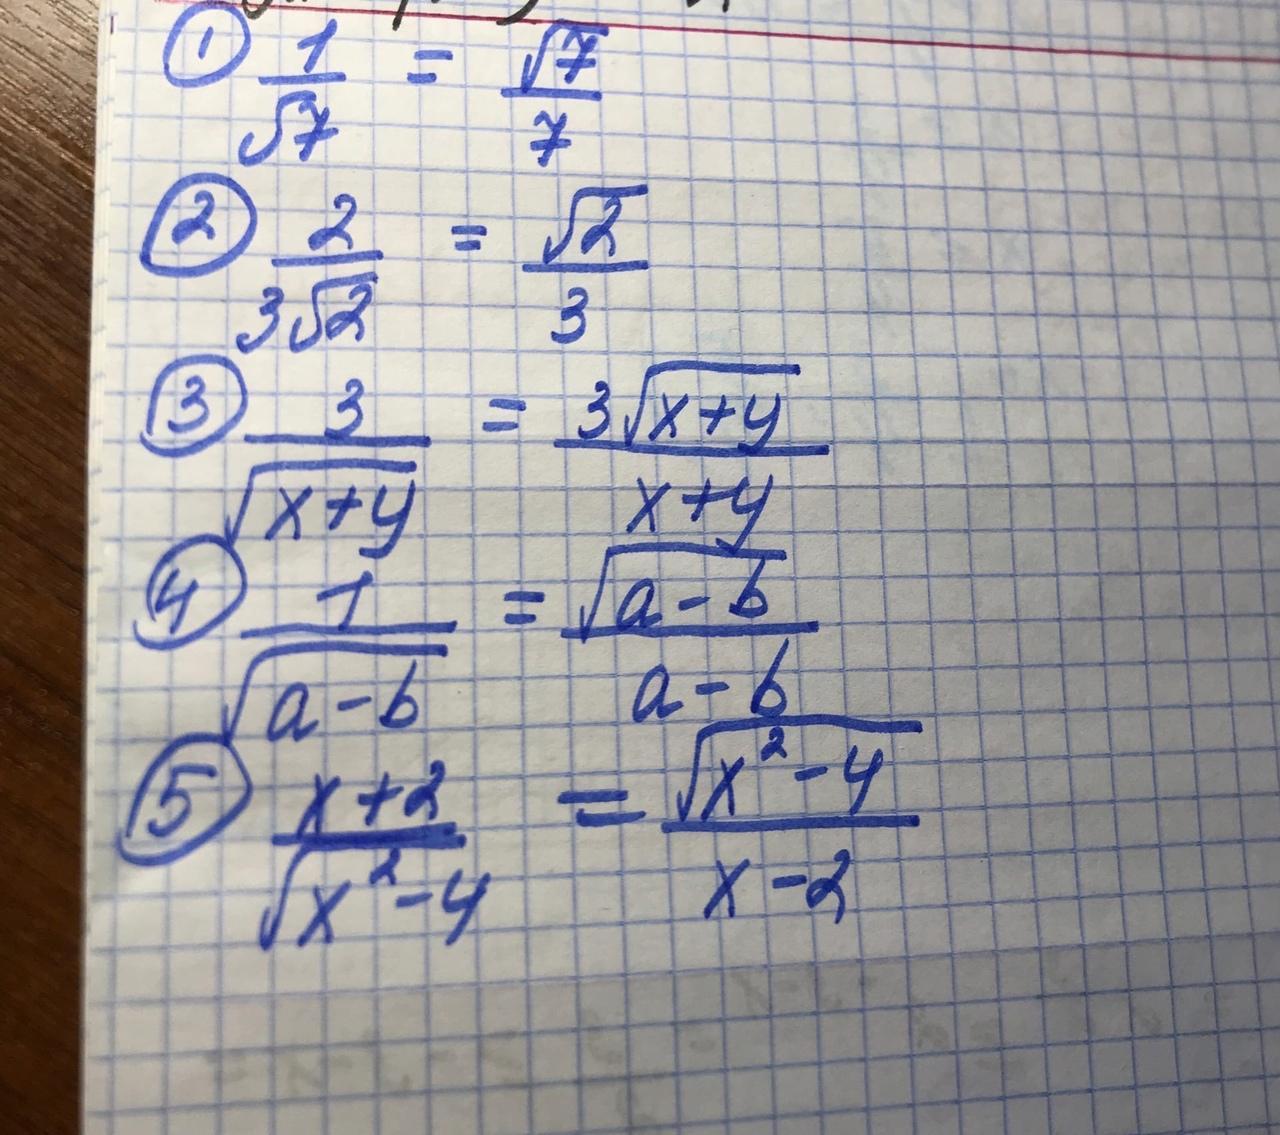 ① 1/√7 = √7/7
② 2/(3√2) = √2/3
③ 3/√(x+y) = 3√(x+y)/(x+y)
④ 1/√(a-b) = √(a-b)/(a-b)
⑤ (x+2)/√(x²-4) = √(x²-4)/(x-2)